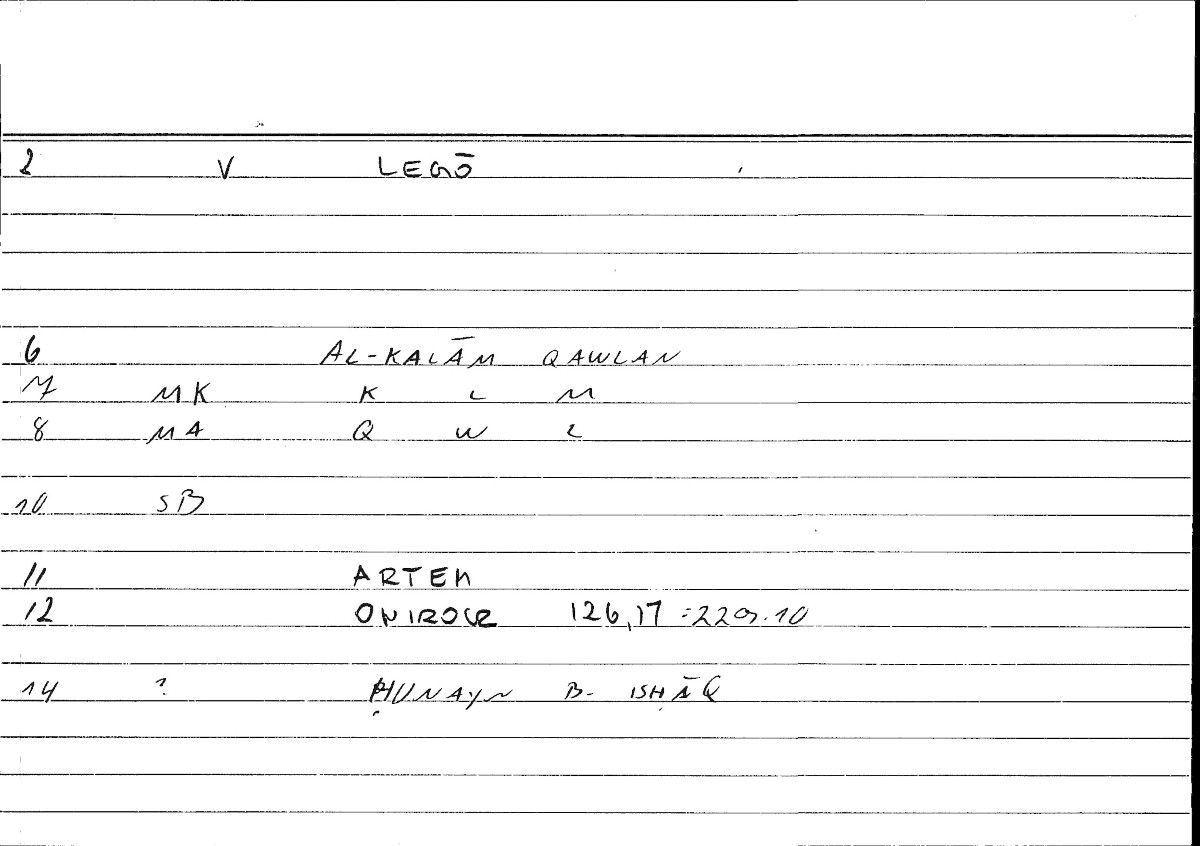 2 V LEGŌ
6 AL-KALĀM QAWLAN
7 MK K L M
8 MA Q W L
10 SB
11 ARTEM
12 ONIROCR 126,17 =229.10
14 ? ḤUNAYN B- ISḤĀQ